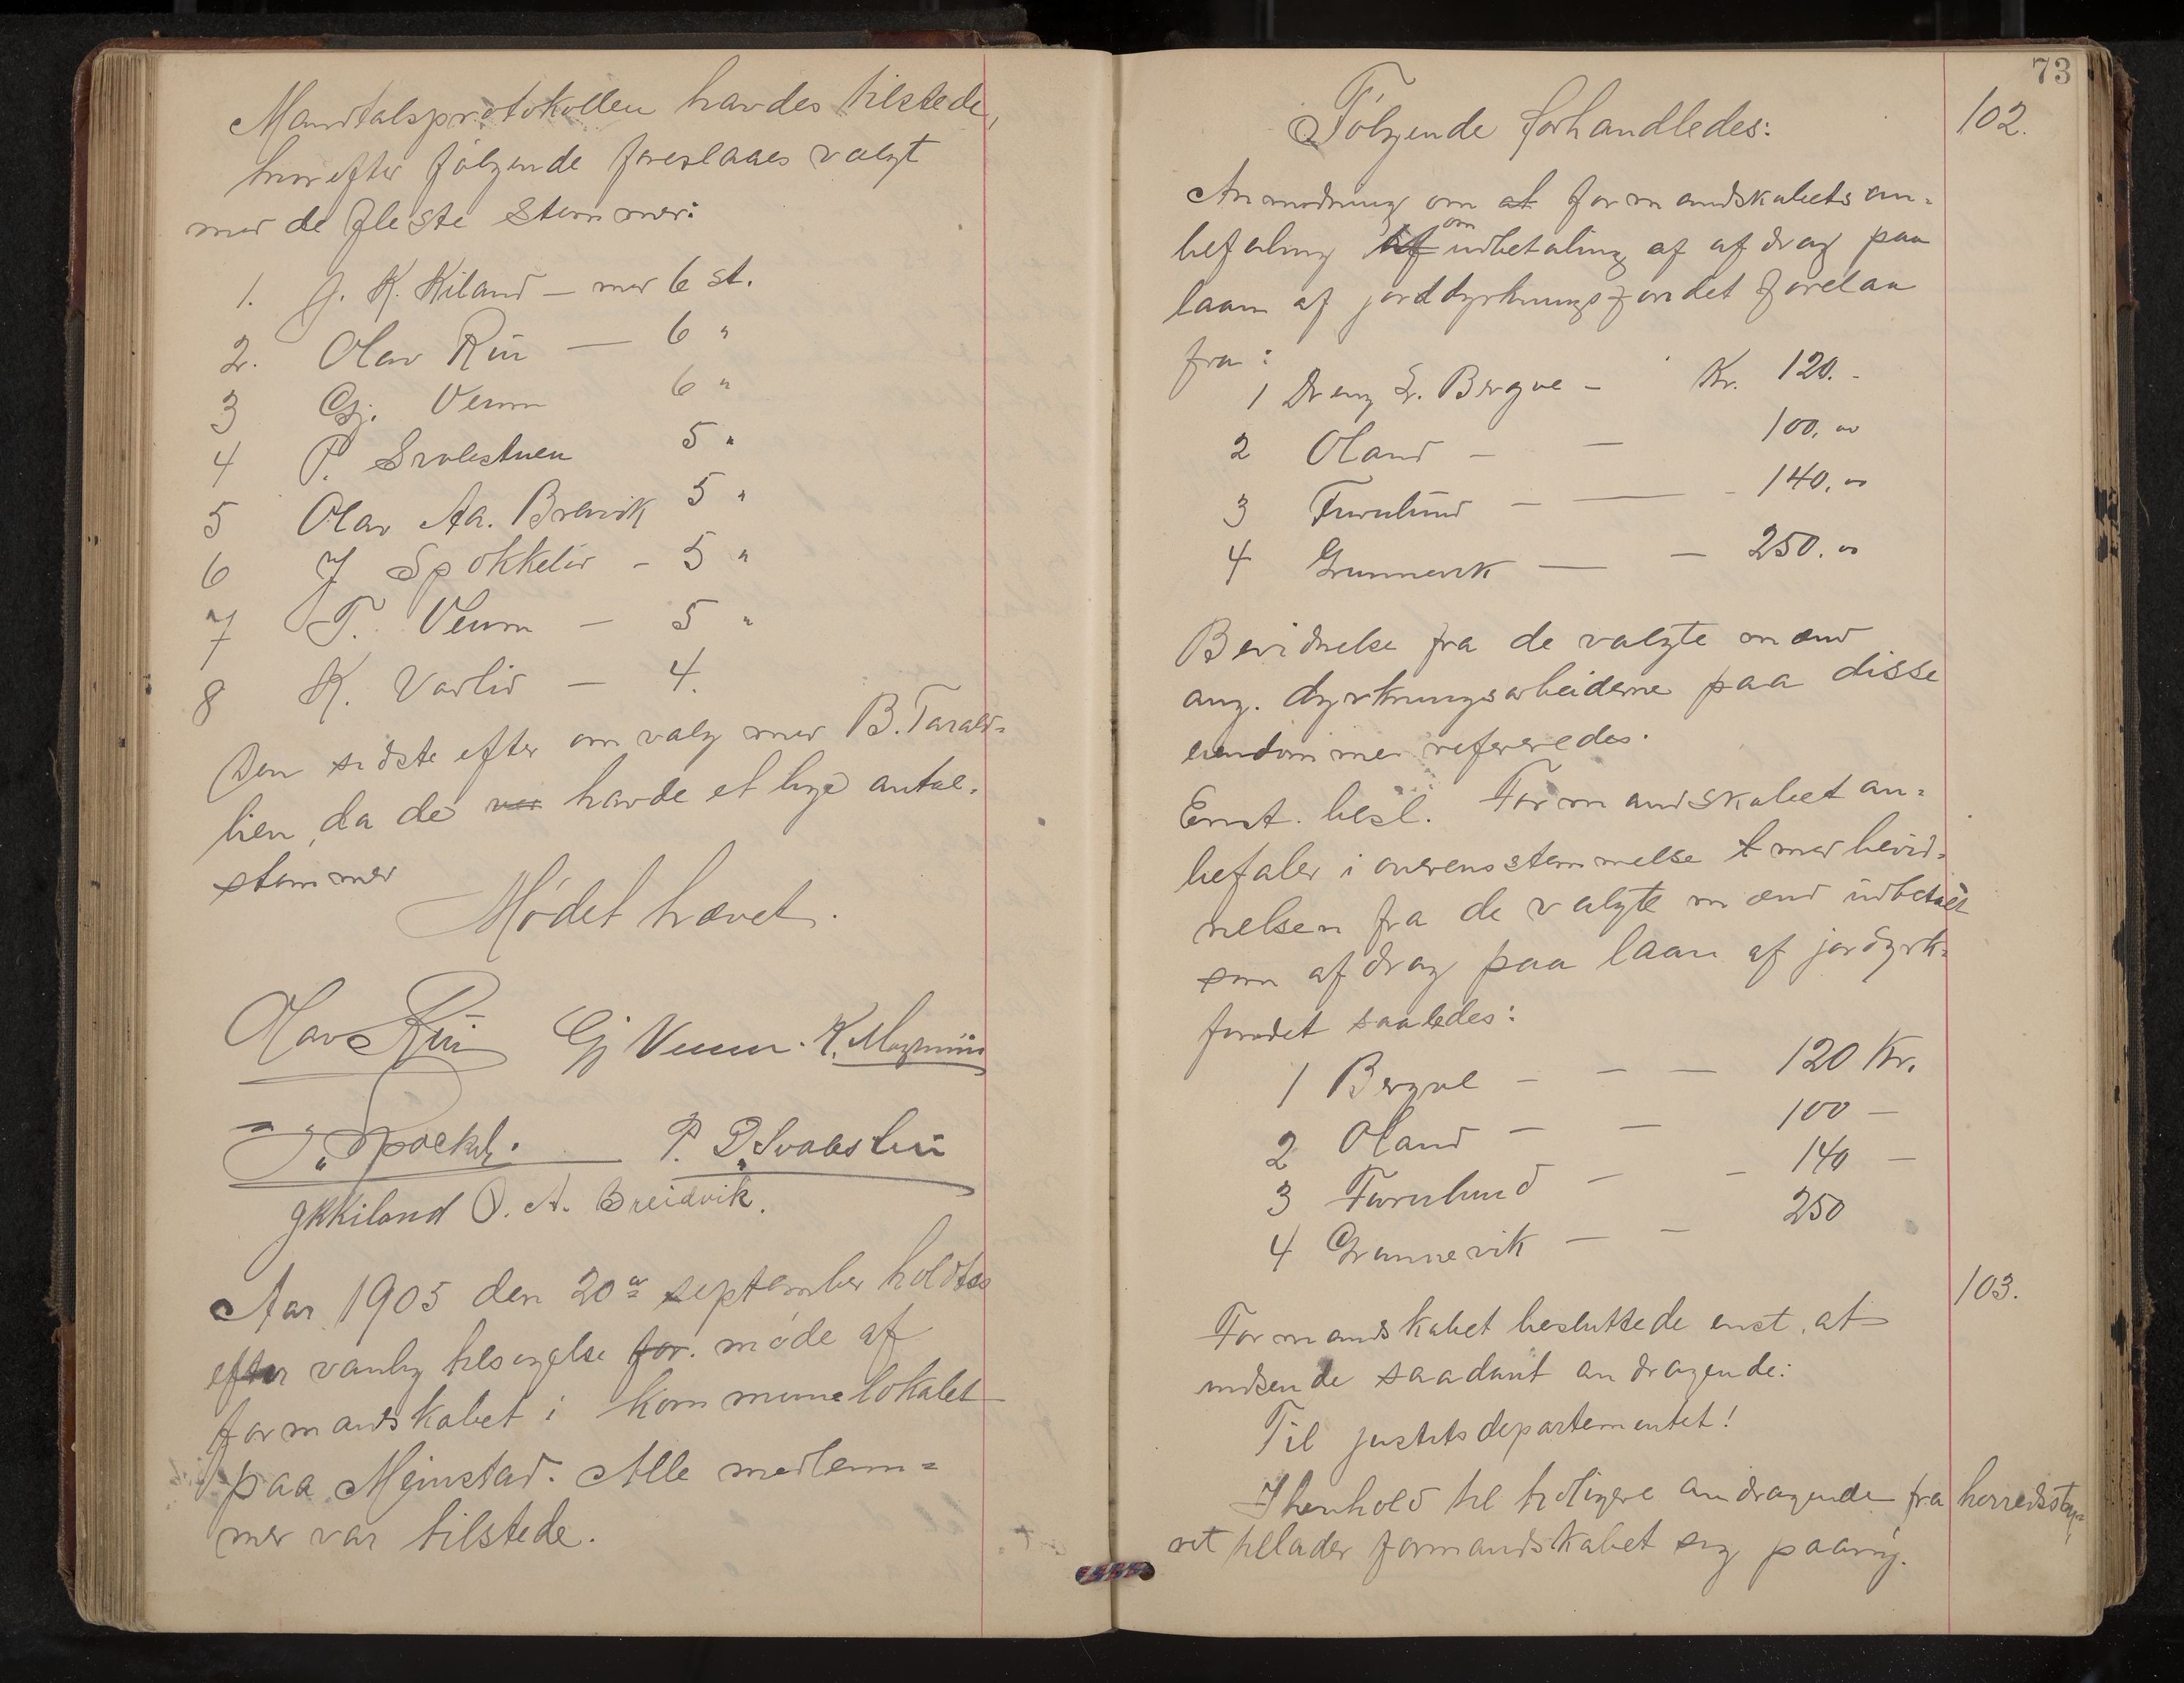 Mandtalsprotokollen havdes tilstede,
hvorefter følgende foreslaaes valgt
med de fleste stemmer:
1. G. K. Kiland — med 6 st.
2. Olav Rui — 6 "
3 Gj. Veum 6 "
4 P. Svalestuen 5 "
5 Olav Aa. Breivik 5 "
6 J Spokkelid - 5 "
7 T. Veum — 5 "
8 K. Vaslid — 4.
Den sidste efter omvalg med B. Tarald-
lien, da de havde et lige antal
stemmer
Mødet hævet.
Olav Rui Gj Veum. K.
J. P. D. Svalestui
GKKiland O. A. Breidvik.
Aar 1905 den 20de september holdtes
efter vanlig tilsigelse for. møde af
formandskabet i kommunelokalet
paa Mejnstad. Alle medlem=
mer var tilstede.
73
Følgende forhandledes:
102.
Anmodning om at formandskabets an=
befaling af om udbetaling af afdrag paa
laan af jorddyrkningsfondet forelaa
fra:
1 Dreng L. Bergve - Kr. 120.-
2 Oland - — 100,00
3 Furulund - — - 140,00
4 Grunnevik — — 250.00
Bevidnelse fra de valgte mænd
ang. dyrkningsarbeiderne paa disse
eiendommer refereredes.
Enst. besl. Formandskabet an=
befaler i overensstemmelse t med bevid=
nelsen fra de valgte mænd udbetalt
som afdrag paa laan af jordyrk=
fondet saaledes:
1 Bergve - - — 120 Kr.
2 Oland - — 100 —
3 Furulund - - 140 —
4 Grunnevik — — 250
103.
Formandskabet besluttede enst. at
indsende saadant andragende:
Til justitsdepartementet!
I henhold til tidligere andragende fra herredssty=
ret tillader formandskabet sig paany.